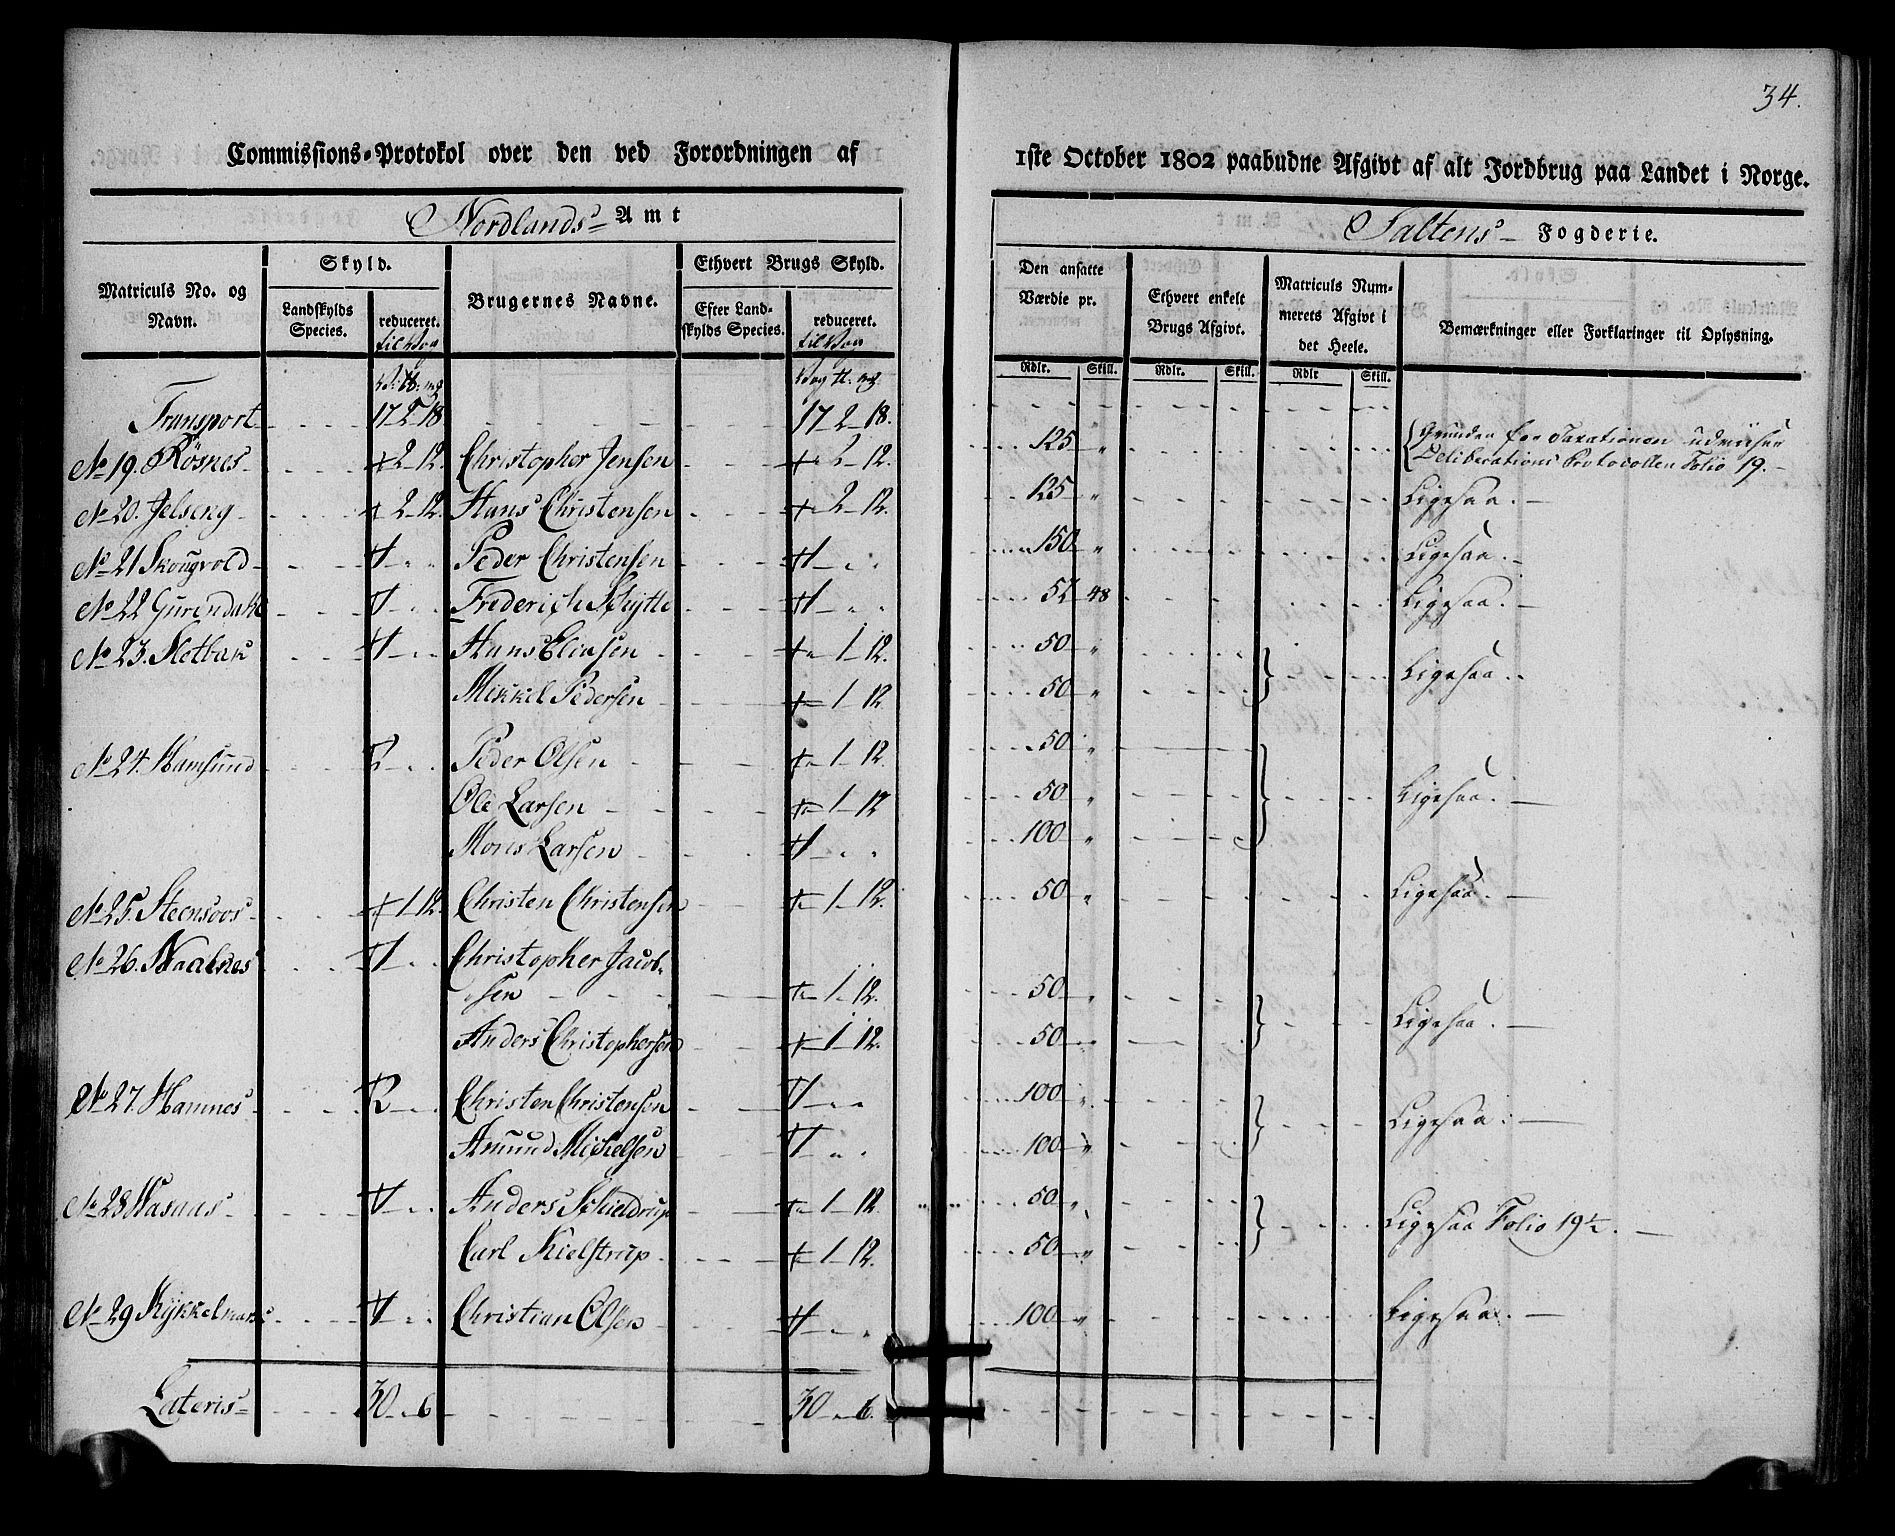 34.
Commissions-Protokol over den ved Forordningen af 1ste October 1802 paabudne Afgivt af alt Jordbrug paa Landet i Norge.
Nordlands Amt
Saltens Fogderie.
Matriculs No. og Navn.
Skyld.
Landskylds Species.
reduceret.
til Vog
Brugernes Navne.
Ethvert Brugs Skyld.
Efter Landskylds Species.
reduceret.
til Vog
Den ansatte Værdie pr.
Ethvert enkelt Brugs Afgivt.
Matriculs Nummerets Afgivt i det Heele.
Bemærkninger eller Forklaringer til Oplysning.
Rdlr. Skill. Rdlr. Skill. Rdlr Skill.
Transport 17 2 18 17 2 18.
No 19. Rösnes 2 12. Christopher Jensen 2 12. 125 " Grunden for Taxationen udviiser
Deliberations Protocollen Folio 19.
No 20. Jelseng 2 12. Hans Christensen 2 12. 125 " Ligesaa.
No 21 Skougvold 1 Peder Christensen 1 150 " Ligesaa.
No 22 Gurendahl 1 Frederich Schytte 1 52 48 Ligesaa.
No 23. Kletbak 1 Hans Eliasen 1 12. 50 " Ligesaa.
Mikkel Pedersen 1 12 50 "
No 24. Hamsund 2 Peder Olsen 1 12. 50 " Ligesaa.
Ole Larsen 1 12 50 "
Mons Larsen 1 100 "
No 25. Steensoos 1 12. Christen Christensen 1 12. 50 " Ligesaa.
No 26. Naalnes 1 Christopher Jacob-
sen 1 12. 50 " Ligesaa.
Anders Christophersen 1 12. 50 "
No 27. Hamnes 2 Christen Christensen 1 100 " Ligesaa.
Amund Mickelsen 1 100 "
No 28 Hasaas 1 Anders Schieldrup 1 12 50 " Ligesaa Folio 19½.
Carl Kielstrup 1 12. 50 "
No 29 Kykkelvans 1 Christian Olsen 1 100 " Ligesaa.
Lateris 30 " 6 30 " 6.